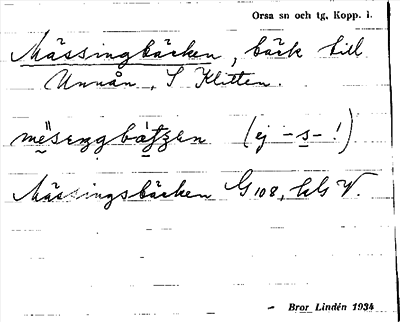 Orsa sn och tg. Kopp. l.
Mässingbäcken, bäck till
Unnån, S Klitten.
(ej -s- !)
Mässingsbäcken G 108, hls V.
- Bror Lindén 1934